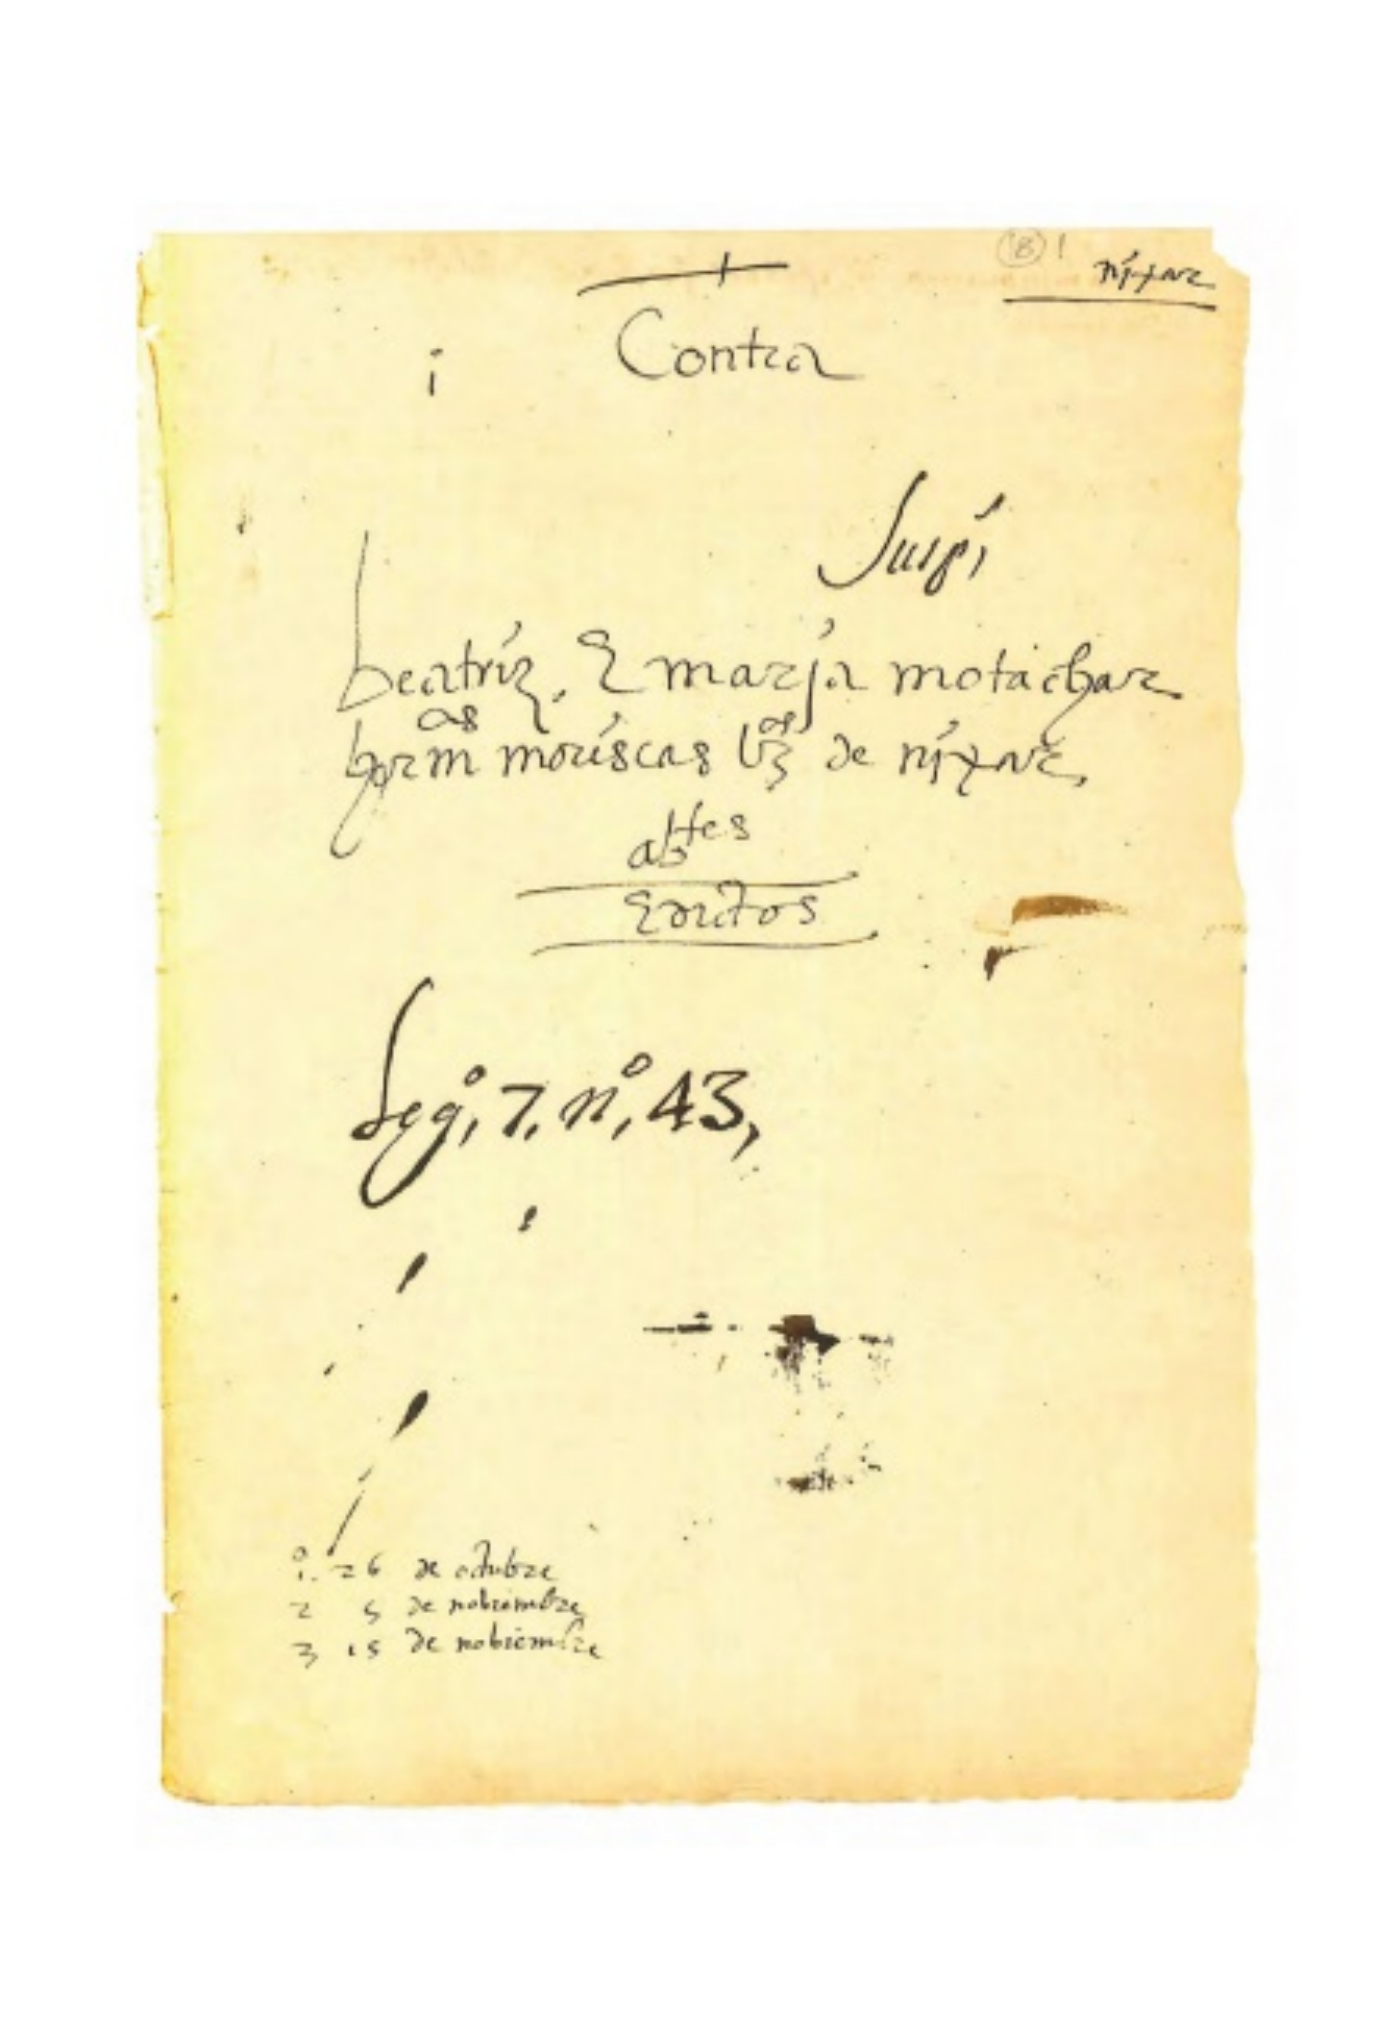 nixar
Contra
i
beatriz, E maria motachar
herm as moriscas vzas de nixar,
abtes
Edictos
Lego, 7, no, 43,
1. 26 de octubre
2 5 de nobiembre
3 15 de nobiembre